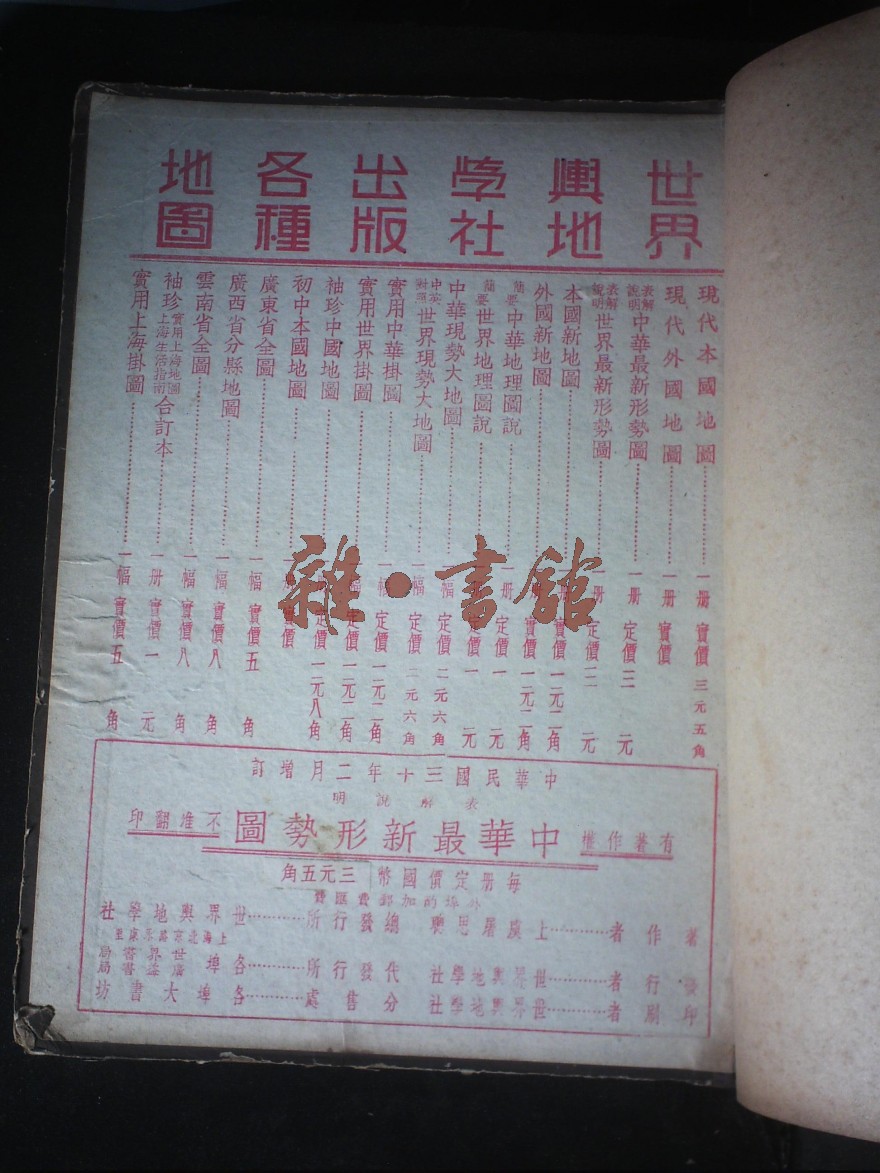 世界輿地學社出版各種地圖
現代本國地圖⋯⋯一册 實價 三元五角
現代外國地圖⋯⋯一册 實價
表解說明中華最新形勢圖⋯⋯一册 定價三元
表解說明世界最新形勢圖⋯⋯册 定價二元
本國新地圖⋯⋯册 實價一元二角
外國新地圖⋯⋯實價一元二角
簡要中華地理圖說⋯⋯册 定價一元
簡要世界地理圖說⋯⋯定價一元
中華現勢大地圖⋯⋯幅 定價二元六角
中英對照世界現勢大地圖⋯⋯一幅 定價二元六角
實用中華掛圖⋯⋯一幅 定價一元二角
實用世界掛圖⋯⋯幅 定價一元二角
袖珍中國地圖⋯⋯定價一元八角
初中本國地圖⋯⋯册 實價
廣東省全圖⋯⋯一幅 實價五角
廣西省分縣地圖⋯⋯一幅 實價八角
雲南省全圖⋯⋯一幅 實價八角
袖珍實用上海地圖上海生活指南合訂本⋯⋯一册 實價一元
實用上海掛圖⋯⋯一幅 實價五角
中華民國三十年二月增訂
表解說明
有著作權 中華最新形勢圖 不准翻印
每册定價國幣三元五角
外埠酌加郵費匯費
著作者⋯⋯上虞屠思聰
總發行所⋯⋯世界輿地學社
上海北京路
發行者⋯⋯世界輿地學社
代發行所⋯⋯各埠世界書局
印刷者⋯⋯世界輿地學社
分售處⋯⋯各埠大書坊
雜·書舘